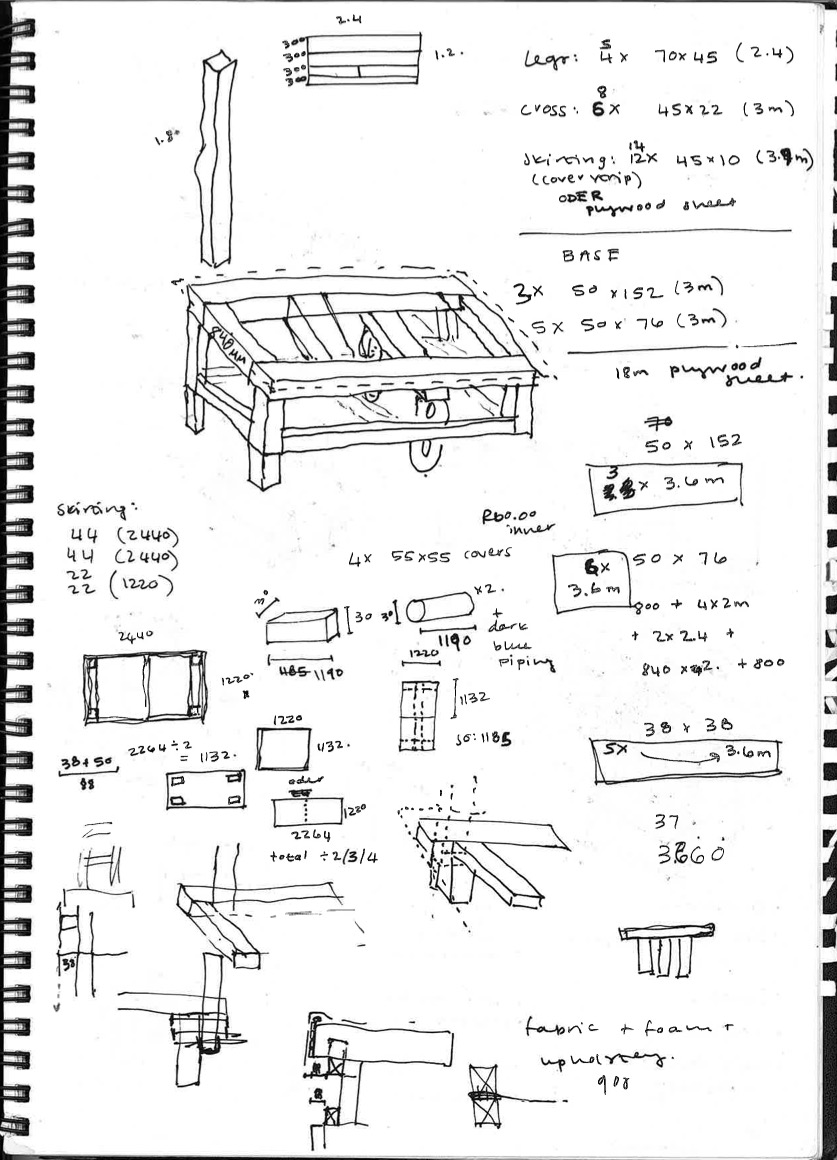 2.4
300
300
300
300
1.2.
1.8
Legs: 5 4x 70x45 (2.4)
8
cross: 6x 45x22 (3m)
14
skirting: 12x 45x10 (3.9m)
(cover strip)
ODER
plywood sheet
BASE
3x 50x152 (3m)
5x 50x76 (3m)
840mm
18m plywood
sheet.
70
50 x 152
3 x 3.6m
skirting:
44 (2440)
44 (2440)
22
22 (1220)
R60.00
inner
4x 55x55 covers
6x 50 x 76
3.6m
800 + 4x2m
+ 2x2.4 +
840 x 2. + 800
30
485 1190
30
x2.
1190
+
dark
blue
piping
2440
1220
1220
1132
50:1185
38+50
88
2264÷2
= 1132.
1220
1132.
oder
1220
2264
total ÷2/3/4
38 x 38
5x 3.6m
37
3660
38
fabric + foam +
upholstery.